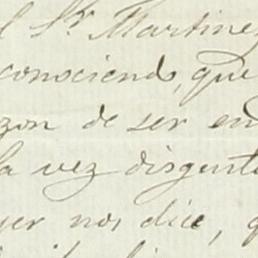 el Sr. Martinez
conociendo, que
zon de ser en
la vez disgust
uer nos dice, q